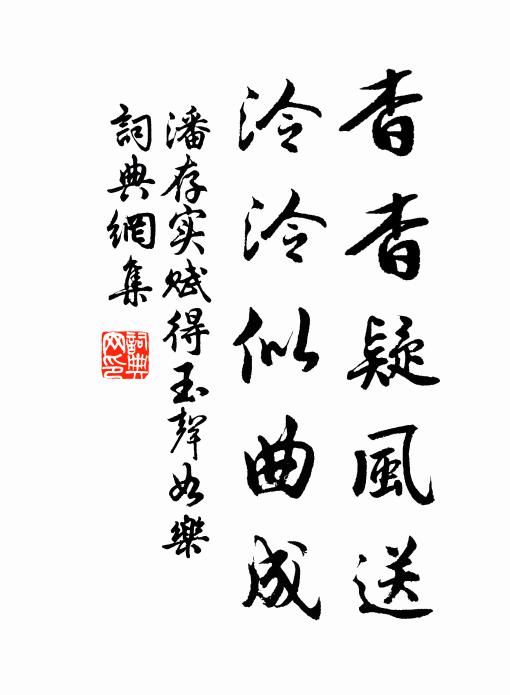 杳杳疑風送
泠泠似曲成
潘存实赋得玉聲如樂
詞典網集
詞典网印